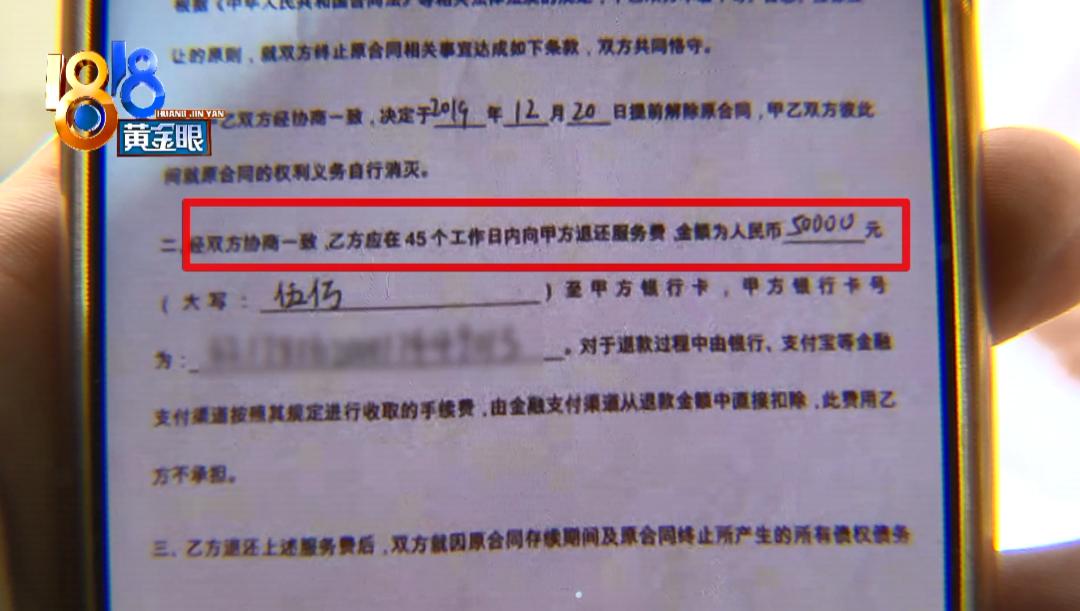 1818
HUANG JIN YAN
黄金眼
根据《中华人民共和国合同法》等相关法律法规的规定
让的原则，就双方终止原合同相关事宜达成如下条款，双方共同恪守。
乙双方经协商一致，决定于2019年12月20日提前解除原合同，甲乙双方彼此
间就原合同的权利义务自行消灭。
二、经双方协商一致，乙方应在45个工作日内向甲方退还服务费，金额为人民币50000元
（大写：伍仟）至甲方银行卡，甲方银行卡号
为：。对于退款过程中由银行、支付宝等金融
支付渠道按照其规定进行收取的手续费，由金融支付渠道从退款金额中直接扣除，此费用乙
方不承担。
三、乙方退还上述服务费后，双方就因原合同存续期间及原合同终止所产生的所有债权债务